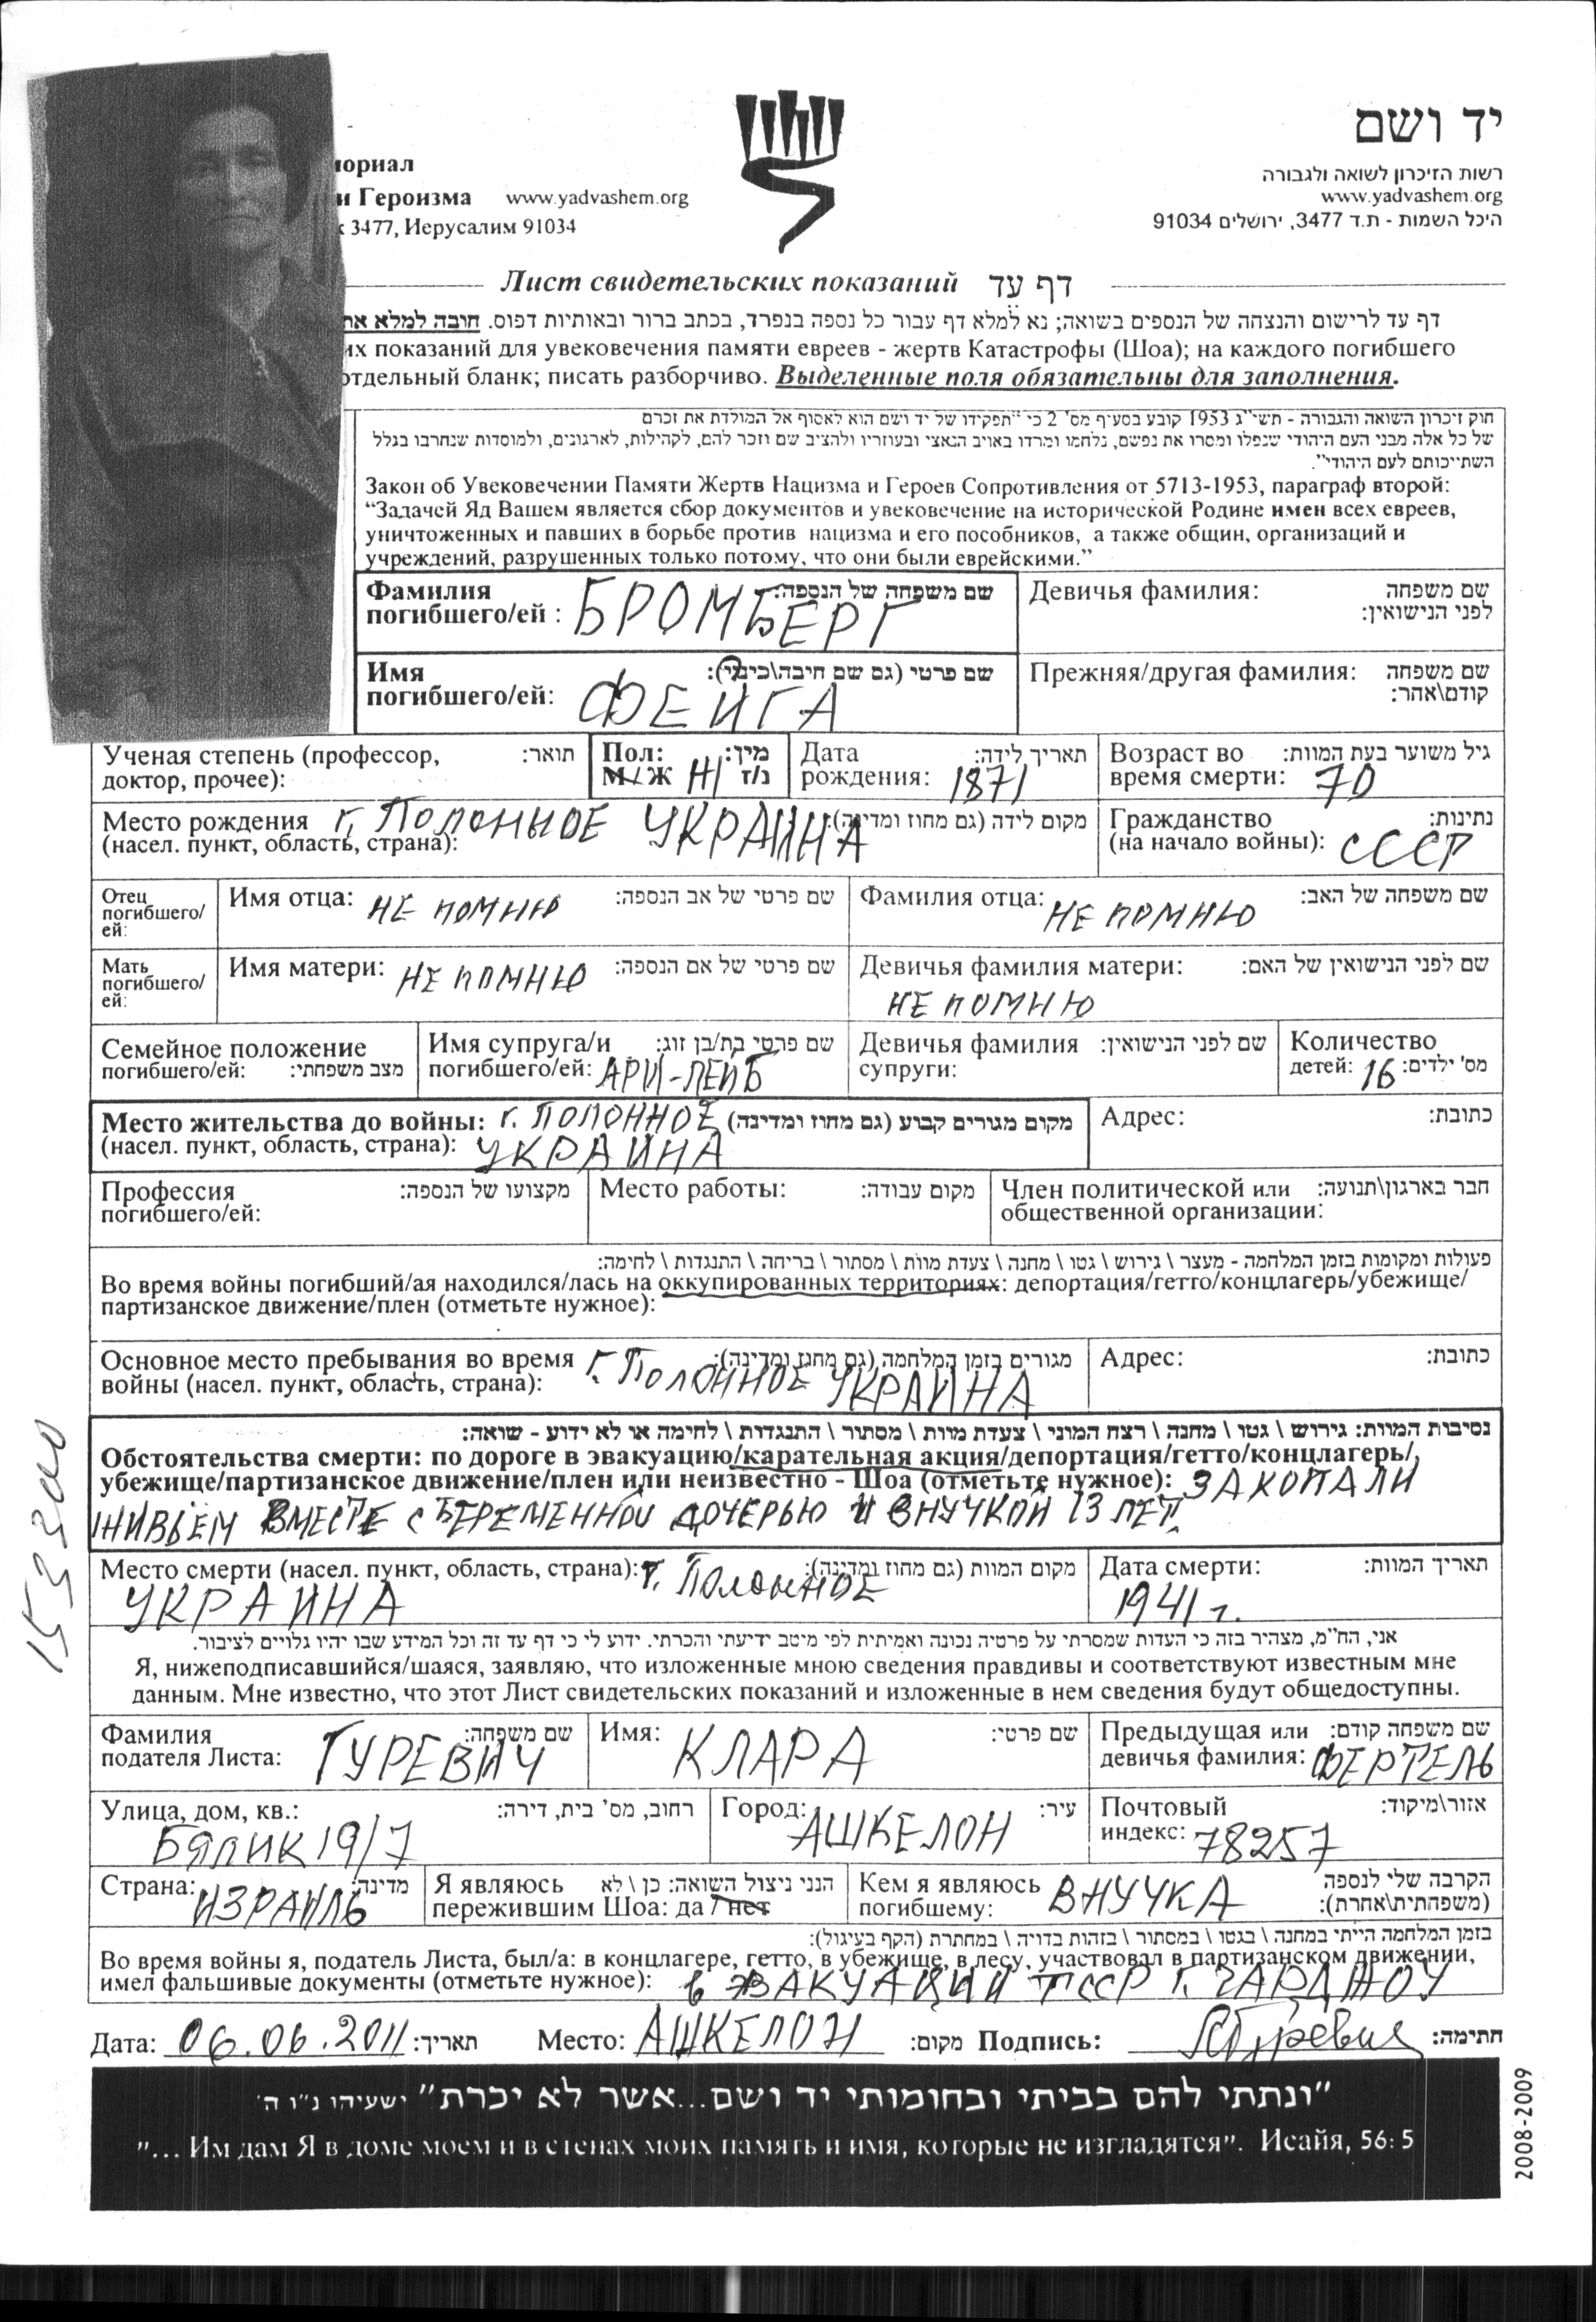 יד ושם
רשות הזיכרון לשואה ולגבורה
www.yadvashem.org
היכל השמות - ת.ד 3477, ירושלים 91034
и Героизма www.yadvashem.org
3477, Иерусалим 91034
Лист свидетельских показаний דף עד
דף עד לרישום והנצחה של הנספים בשואה; נא למלא דף עבור כל נספה בנפרד, בכתב ברור ובאותיות דפוס. חובה למלא את
их показаний для увековечения памяти евреев - жертв Катастрофы (Шоа); на каждого погибшего
отдельный бланк; писать разборчиво. Выделенные поля обязательны для заполнения.
חוק זיכרון השואה והגבורה - תשי"ג 1953 קובע בסעיף מס' 2 כי "תפקידו של יד ושם הוא לאסוף אל המולדת את זכרם
של כל אלה מבני העם היהודי שנפלו ומסרו את נפשם, נלחמו ומרדו באויב הנאצי ובעוזריו ולהציב שם וזכר להם, לקהילות, לארגונים, ולמוסדות שנחרבו בגלל
השתייכותם לעם היהודי".
Закон об Увековечении Памяти Жертв Нацизма и Героев Сопротивления от 5713-1953, параграф второй:
“Задачей Яд Вашем является сбор документов и увековечение на исторической Родине имен всех евреев,
уничтоженных и павших в борьбе против нацизма и его пособников, а также общин, организаций и
учреждений, разрушенных только потому, что они были еврейскими.”
Фамилия погибшего/ей : БРОМБЕРГ שם משפחה של הנספה:
Девичья фамилия: שם משפחה לפני הנישואין:
Имя погибшего/ей: ФЕЙГА שם פרטי (גם שם חיבה\כינוי):
Прежняя/другая фамилия: שם משפחה קודם\אחר:
Ученая степень (профессор, доктор, прочее): תואר:
Пол: М/Ж Ж מין: ז/נ
Дата рождения: 1871 תאריך לידה:
Возраст во время смерти: 70 גיל משוער בעת המוות:
Место рождения (насел. пункт, область, страна): г. ПОЛОННОЕ УКРАИНА מקום לידה (גם מחוז ומדינה):
Гражданство (на начало войны): СССР נתינות:
Отец погибшего/ей:
Имя отца: НЕ ПОМНЮ שם פרטי של אב הנספה:
Фамилия отца: НЕ ПОМНЮ שם משפחה של האב:
Мать погибшего/ей:
Имя матери: НЕ ПОМНЮ שם פרטי של אם הנספה:
Девичья фамилия матери: НЕ ПОМНЮ שם לפני הנישואין של האם:
Семейное положение погибшего/ей: מצב משפחתי:
Имя супруга/и погибшего/ей: АРИ-ЛЕЙБ שם פרטי בת/בן זוג:
Девичья фамилия супруги: שם לפני הנישואין:
Количество детей: 16 מס' ילדים:
Место жительства до войны: г. ПОЛОННОЕ מקום מגורים קבוע (גם מחוז ומדינה)
(насел. пункт, область, страна): УКРАИНА
Адрес: כתובת:
Профессия погибшего/ей: מקצועו של הנספה:
Место работы: מקום עבודה:
Член политической или общественной организации: חבר בארגון\תנועה:
פעולות ומקומות בזמן המלחמה - מעצר \ גירוש \ גטו \ מחנה \ צעדת מוות \ מסתור \ בריחה \ התנגדות \ לחימה:
Во время войны погибший/ая находился/лась на оккупированных территориях: депортация/гетто/концлагерь/убежище/
партизанское движение/плен (отметьте нужное):
Основное место пребывания во время войны (насел. пункт, область, страна): г. ПОЛОННОЕ УКРАИНА מגורים בזמן המלחמה (גם מחוז ומדינה):
Адрес: כתובת:
נסיבות המוות: גירוש \ גטו \ מחנה \ רצח המוני \ צעדת מוות \ מסתור \ התנגדות \ לחימה או לא ידוע - שואה:
Обстоятельства смерти: по дороге в эвакуацию/карательная акция/депортация/гетто/концлагерь/
убежище/партизанское движение/плен или неизвестно - Шоа (отметьте нужное): ЗАКОПАЛИ
ЖИВЬЕМ ВМЕСТЕ С БЕРЕМЕННОЙ ДОЧЕРЬЮ И ВНУЧКОЙ 13 ЛЕТ.
Место смерти (насел. пункт, область, страна): г. Полонное УКРАИНА מקום המוות (גם מחוז ומדינה):
Дата смерти: 1941 г. תאריך המוות:
אני, הח"מ, מצהיר בזה כי העדות שמסרתי על פרטיה נכונה ואמיתית לפי מיטב ידיעתי והכרתי. ידוע לי כי דף עד זה וכל המידע שבו יהיו גלויים לציבור.
Я, нижеподписавшийся/шаяся, заявляю, что изложенные мною сведения правдивы и соответствуют известным мне
данным. Мне известно, что этот Лист свидетельских показаний и изложенные в нем сведения будут общедоступны.
Фамилия подателя Листа: ГУРЕВИЧ שם משפחה:
Имя: КЛАРА שם פרטי:
Предыдущая или девичья фамилия: ФЕРТЕЛЬ שם משפחה קודם:
Улица, дом, кв.: БЯЛИК 19/7 רחוב, מס' בית, דירה:
Город: АШКЕЛОН עיר:
Почтовый индекс: 78257 אזור\מיקוד:
Страна: ИЗРАИЛЬ מדינה:
Я являюсь пережившим Шоа: да / нет הנני ניצול השואה: כן \ לא
Кем я являюсь погибшему: ВНУЧКА הקרבה שלי לנספה (משפחתית\אחרת):
בזמן המלחמה הייתי במחנה \ בגטו \ במסתור \ בזהות בדויה \ במחתרת (הקף בעיגול):
Во время войны я, податель Листа, был/а: в концлагере, гетто, в убежище, в лесу, участвовал в партизанском движении,
имел фальшивые документы (отметьте нужное): в ЭВАКУАЦИИ ТССР г. ЧАРДЖОУ
Дата: 06.06.2011 תאריך: Место: АШКЕЛОН מקום: Подпись: חתימה:
"ונתתי להם בביתי ובחומותי יד ושם...אשר לא יכרת" ישעיהו נ"ו ה'
"... Им дам Я в доме моем и в стенах моих память и имя, которые не изгладятся". Исайя, 56: 5
2008-2009